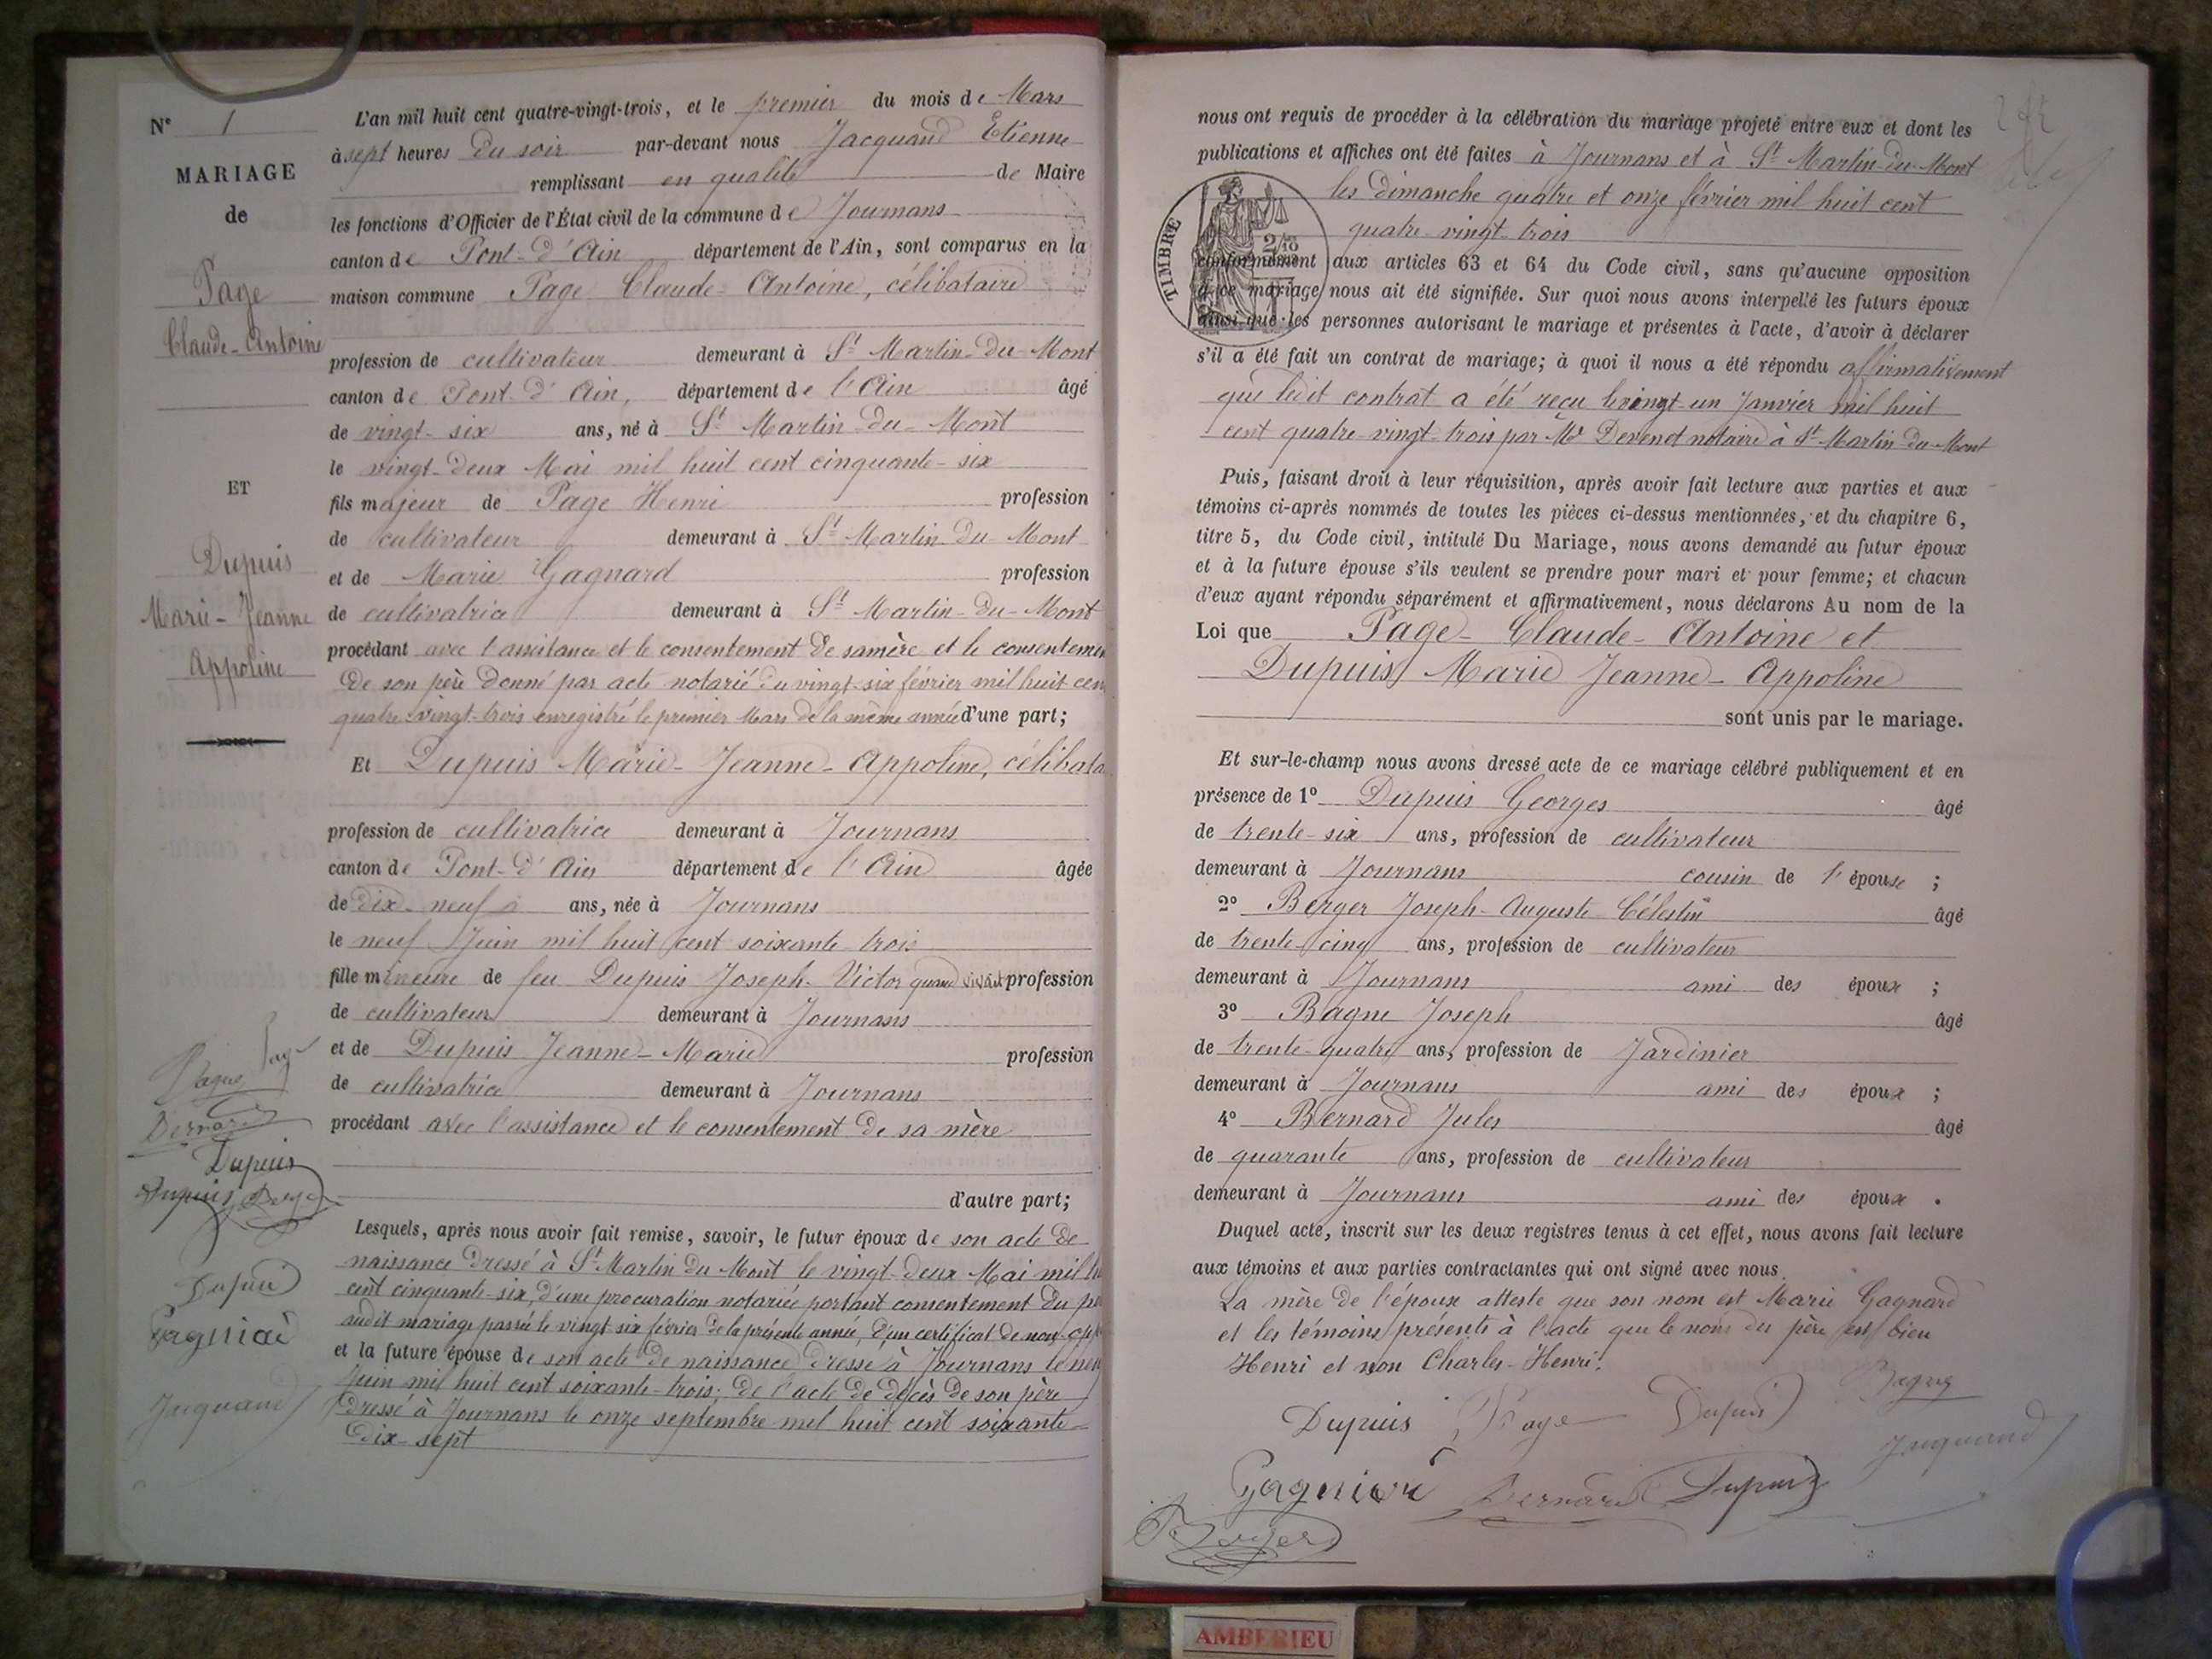 N° 1
MARIAGE
de
Page
Claude-Antoine
ET
Dupuis
Marie-Jeanne
Appoline
Page
Bagne
Bernard
Dupuis
Dupuis Berger
Dupuis
Gagniai
Jacquand
L'an mil huit cent quatre-vingt-trois, et le premier du mois de Mars
à sept heures du soir par-devant nous Jacquand Etienne
remplissant en qualité de Maire
les fonctions d'Officier de l'État civil de la commune de Journans
canton de Pont-d'Ain département de l'Ain, sont comparus en la
maison commune Page Claude-Antoine, célibataire
profession de cultivateur demeurant à St Martin-du-Mont
canton de Pont-d'Ain, département de l'Ain âgé
de vingt-six ans, né à St Martin-du-Mont
le vingt-deux Mai mil huit cent cinquante-six
fils majeur de Page Henri profession
de cultivateur demeurant à St Martin-du-Mont
et de Marie Gagnard profession
de cultivatrice demeurant à St Martin-du-Mont
procédant avec l'assistance et le consentement de sa mère et le consentemen
de son père donné par acte notarié du vingt-six février mil huit cen
quatre-vingt-trois enregistré le premier Mars de la même année d'une part;
Et Dupuis Marie-Jeanne-Appoline, célibata
profession de cultivatrice demeurant à Journans
canton de Pont-d'Ain département de l'Ain âgée
de dix-neuf ans, née à Journans
le neuf Juin mil huit cent soixante-trois
fille mineure de feu Dupuis Joseph-Victor quand vivait profession
de cultivateur demeurant à Journans
et de Dupuis Jeanne-Marie profession
de cultivatrice demeurant à Journans
procédant avec l'assistance et le consentement de sa mère
d'autre part;
Lesquels, après nous avoir fait remise, savoir, le futur époux de son acte de
naissance dressé à St Martin du Mont le vingt-deux Mai mil hu
cent cinquante-six, d'une procuration notariée portant consentement du pè
audit mariage passée le vingt six février de la présente année, d'un certificat de non-opp
et la future épouse de son acte de naissance dressé à Journans le neu
Juin mil huit cent soixante-trois; de l'acte de décès de son père
dressé à Journans le onze septembre mil huit cent soixante-
dix-sept
nous ont requis de procéder à la célébration du mariage projeté entre eux et dont les
publications et affiches ont été faites à Journans et à St Martin-du-Mont
les dimanche quatre et onze février mil huit cent
quatre-vingt-trois
TIMBRE
conformément aux articles 63 et 64 du Code civil, sans qu'aucune opposition
à ce mariage nous ait été signifiée. Sur quoi nous avons interpellé les futurs époux
ainsi que les personnes autorisant le mariage et présentes à l'acte, d'avoir à déclarer
s'il a été fait un contrat de mariage; à quoi il nous a été répondu affirmativement
que ledit contrat a été reçu le vingt-un Janvier mil huit
cent quatre-vingt-trois par Me Devenet notaire à St-Martin-du-Mont
Puis, faisant droit à leur réquisition, après avoir fait lecture aux parties et aux
témoins ci-après nommés de toutes les pièces ci-dessus mentionnées, et du chapitre 6,
titre 5, du Code civil, intitulé Du Mariage, nous avons demandé au futur époux
et à la future épouse s'ils veulent se prendre pour mari et pour femme; et chacun
d'eux ayant répondu séparément et affirmativement, nous déclarons Au nom de la
Loi que Page-Claude-Antoine et
Dupuis Marie Jeanne-Appoline
sont unis par le mariage.
Et sur-le-champ nous avons dressé acte de ce mariage célébré publiquement et en
présence de 1° Dupuis Georges âgé
de trente-six ans, profession de cultivateur
demeurant à Journans cousin de l'épouse ;
2° Berger Joseph-Auguste-Célestin âgé
de trente-cinq ans, profession de cultivateur
demeurant à Journans ami des époux ;
3° Bagne Joseph âgé
de trente-quatre ans, profession de Jardinier
demeurant à Journans ami des époux ;
4° Bernard Jules âgé
de quarante ans, profession de cultivateur
demeurant à Journans ami des époux .
Duquel acte, inscrit sur les deux registres tenus à cet effet, nous avons fait lecture
aux témoins et aux parties contractantes qui ont signé avec nous
La mère de l'époux atteste que son nom est Marie Gagnard
et les témoins présents à l'acte que le nom du père est bien
Henri et non Charles-Henri.
Bagne
Dupuis Page Dupuis
Jacquand
Bernard Dupuis
Berger
AMBERIEU